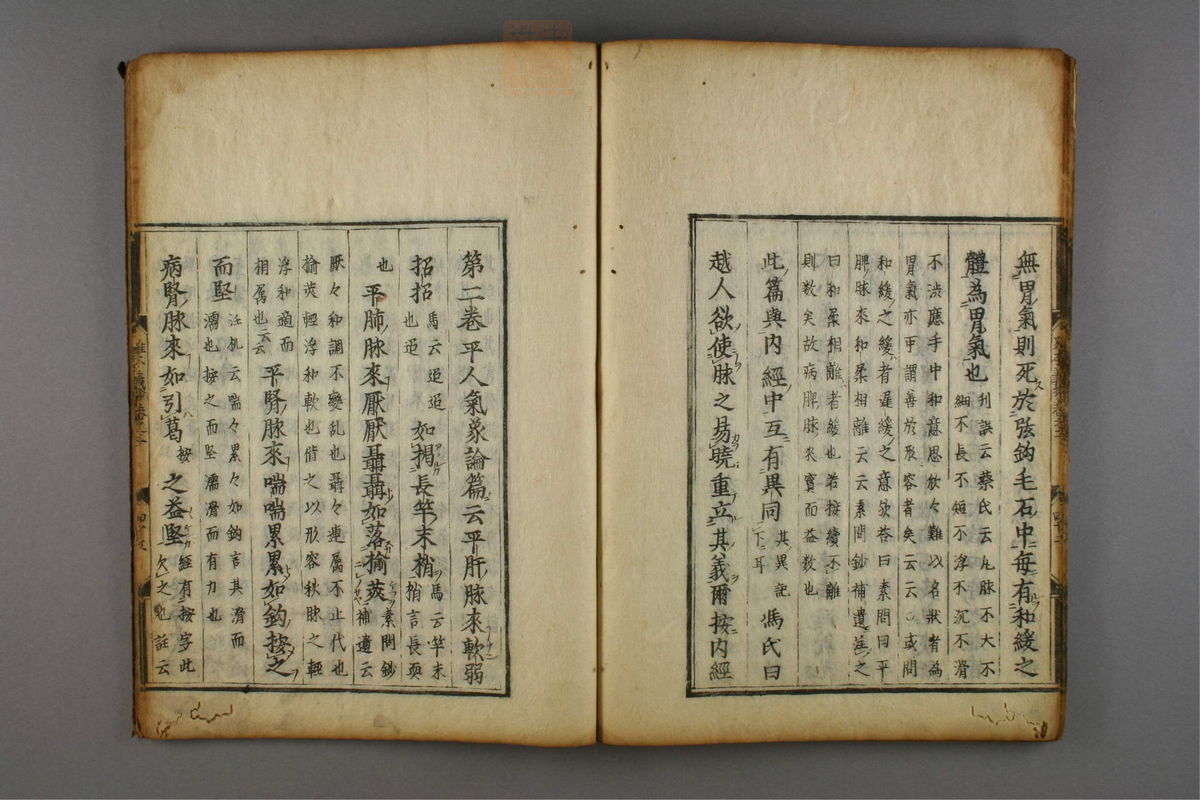 無胃氣則死於弦鈎毛石中每有和緩之
體為胃氣也利訣云蔡氏云凡脉不大不
細不長不短不浮不沉不滑
不渋應手中和意思欣々難以名狀者為
胃氣亦可謂善於形容者矣云云○或問
和緩之緩者遲緩之意欤荅曰素問曰平
脾脉來和柔相離云云素問鈔補遺注之
曰和柔相離者緩也若接續不離
則数矣故病脾脉來實而益数也
此篇與內經中互有異同其異記
下耳
馮氏曰
越人欲使脉之易曉重立其義爾按内經
第二卷平人氣象論篇云平肝脉來軟弱
招招馬云迢迢
也迢
如揭長竿末梢馬云竿末
梢言長耎
也
平肺脉來厭厭聶聶如落榆莢素問鈔
補遺云
厭々和調不變乱也聶々連属不止代也
榆莢輕浮和軟也借之以形容秋脉之輕
浮和適而
相属也云云
平腎脉來喘喘累累如鈎按之
而堅汪机云喘々累々如鈎言其滑而
濡也按之而堅濡滑而有力也
病腎脉來如引葛按
之益堅經有按字此
欠之也註云